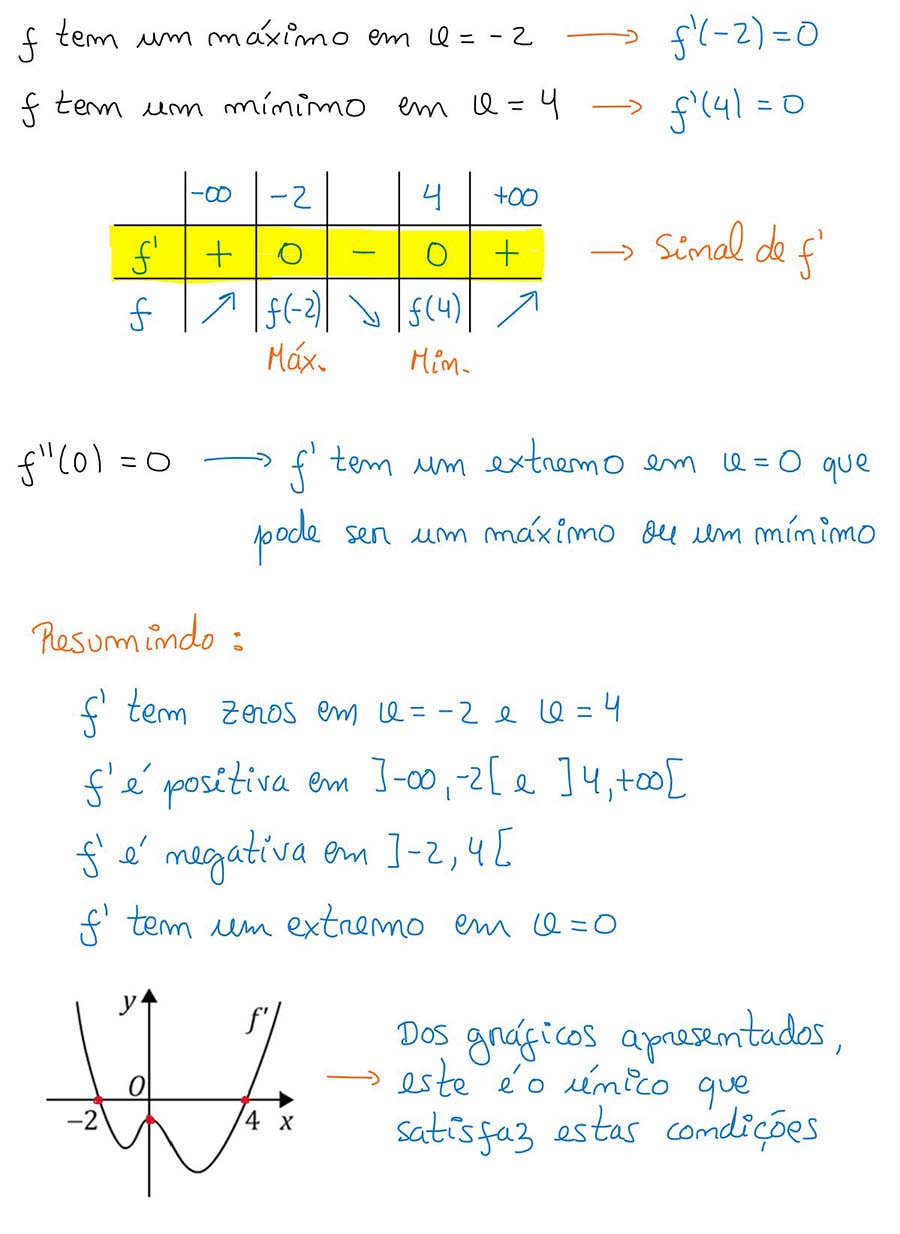 f tem um máximo em x = -2 → f'(-2) = 0
f tem um mínimo em x = 4 → f'(4) = 0
-∞ -2 4 +∞
f' + 0 - 0 + → Sinal de f'
f ↗ f(-2) ↘ f(4) ↗
Máx. Mín.
f''(0) = 0 → f' tem um extremo em x = 0 que
pode ser um máximo ou um mínimo
Resumindo:
f' tem zeros em x = -2 e x = 4
f' é positiva em ]-∞, -2[ e ]4, +∞[
f' é negativa em ]-2, 4[
f' tem um extremo em x = 0
y f'
0
-2 4 x
→ Dos gráficos apresentados,
este é o único que
satisfaz estas condições